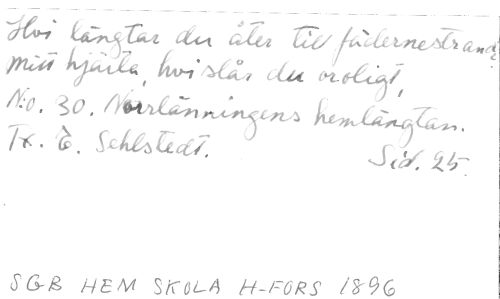 Hvi längtar du åter till fädernestrand,
mitt hjärta, hvi slår du oroligt,
N:o. 30. Norrlänningens hemlängtan.
Tx. E. Sehlstedt. Sid. 25.
SGB HEM SKOLA H-FORS 1896